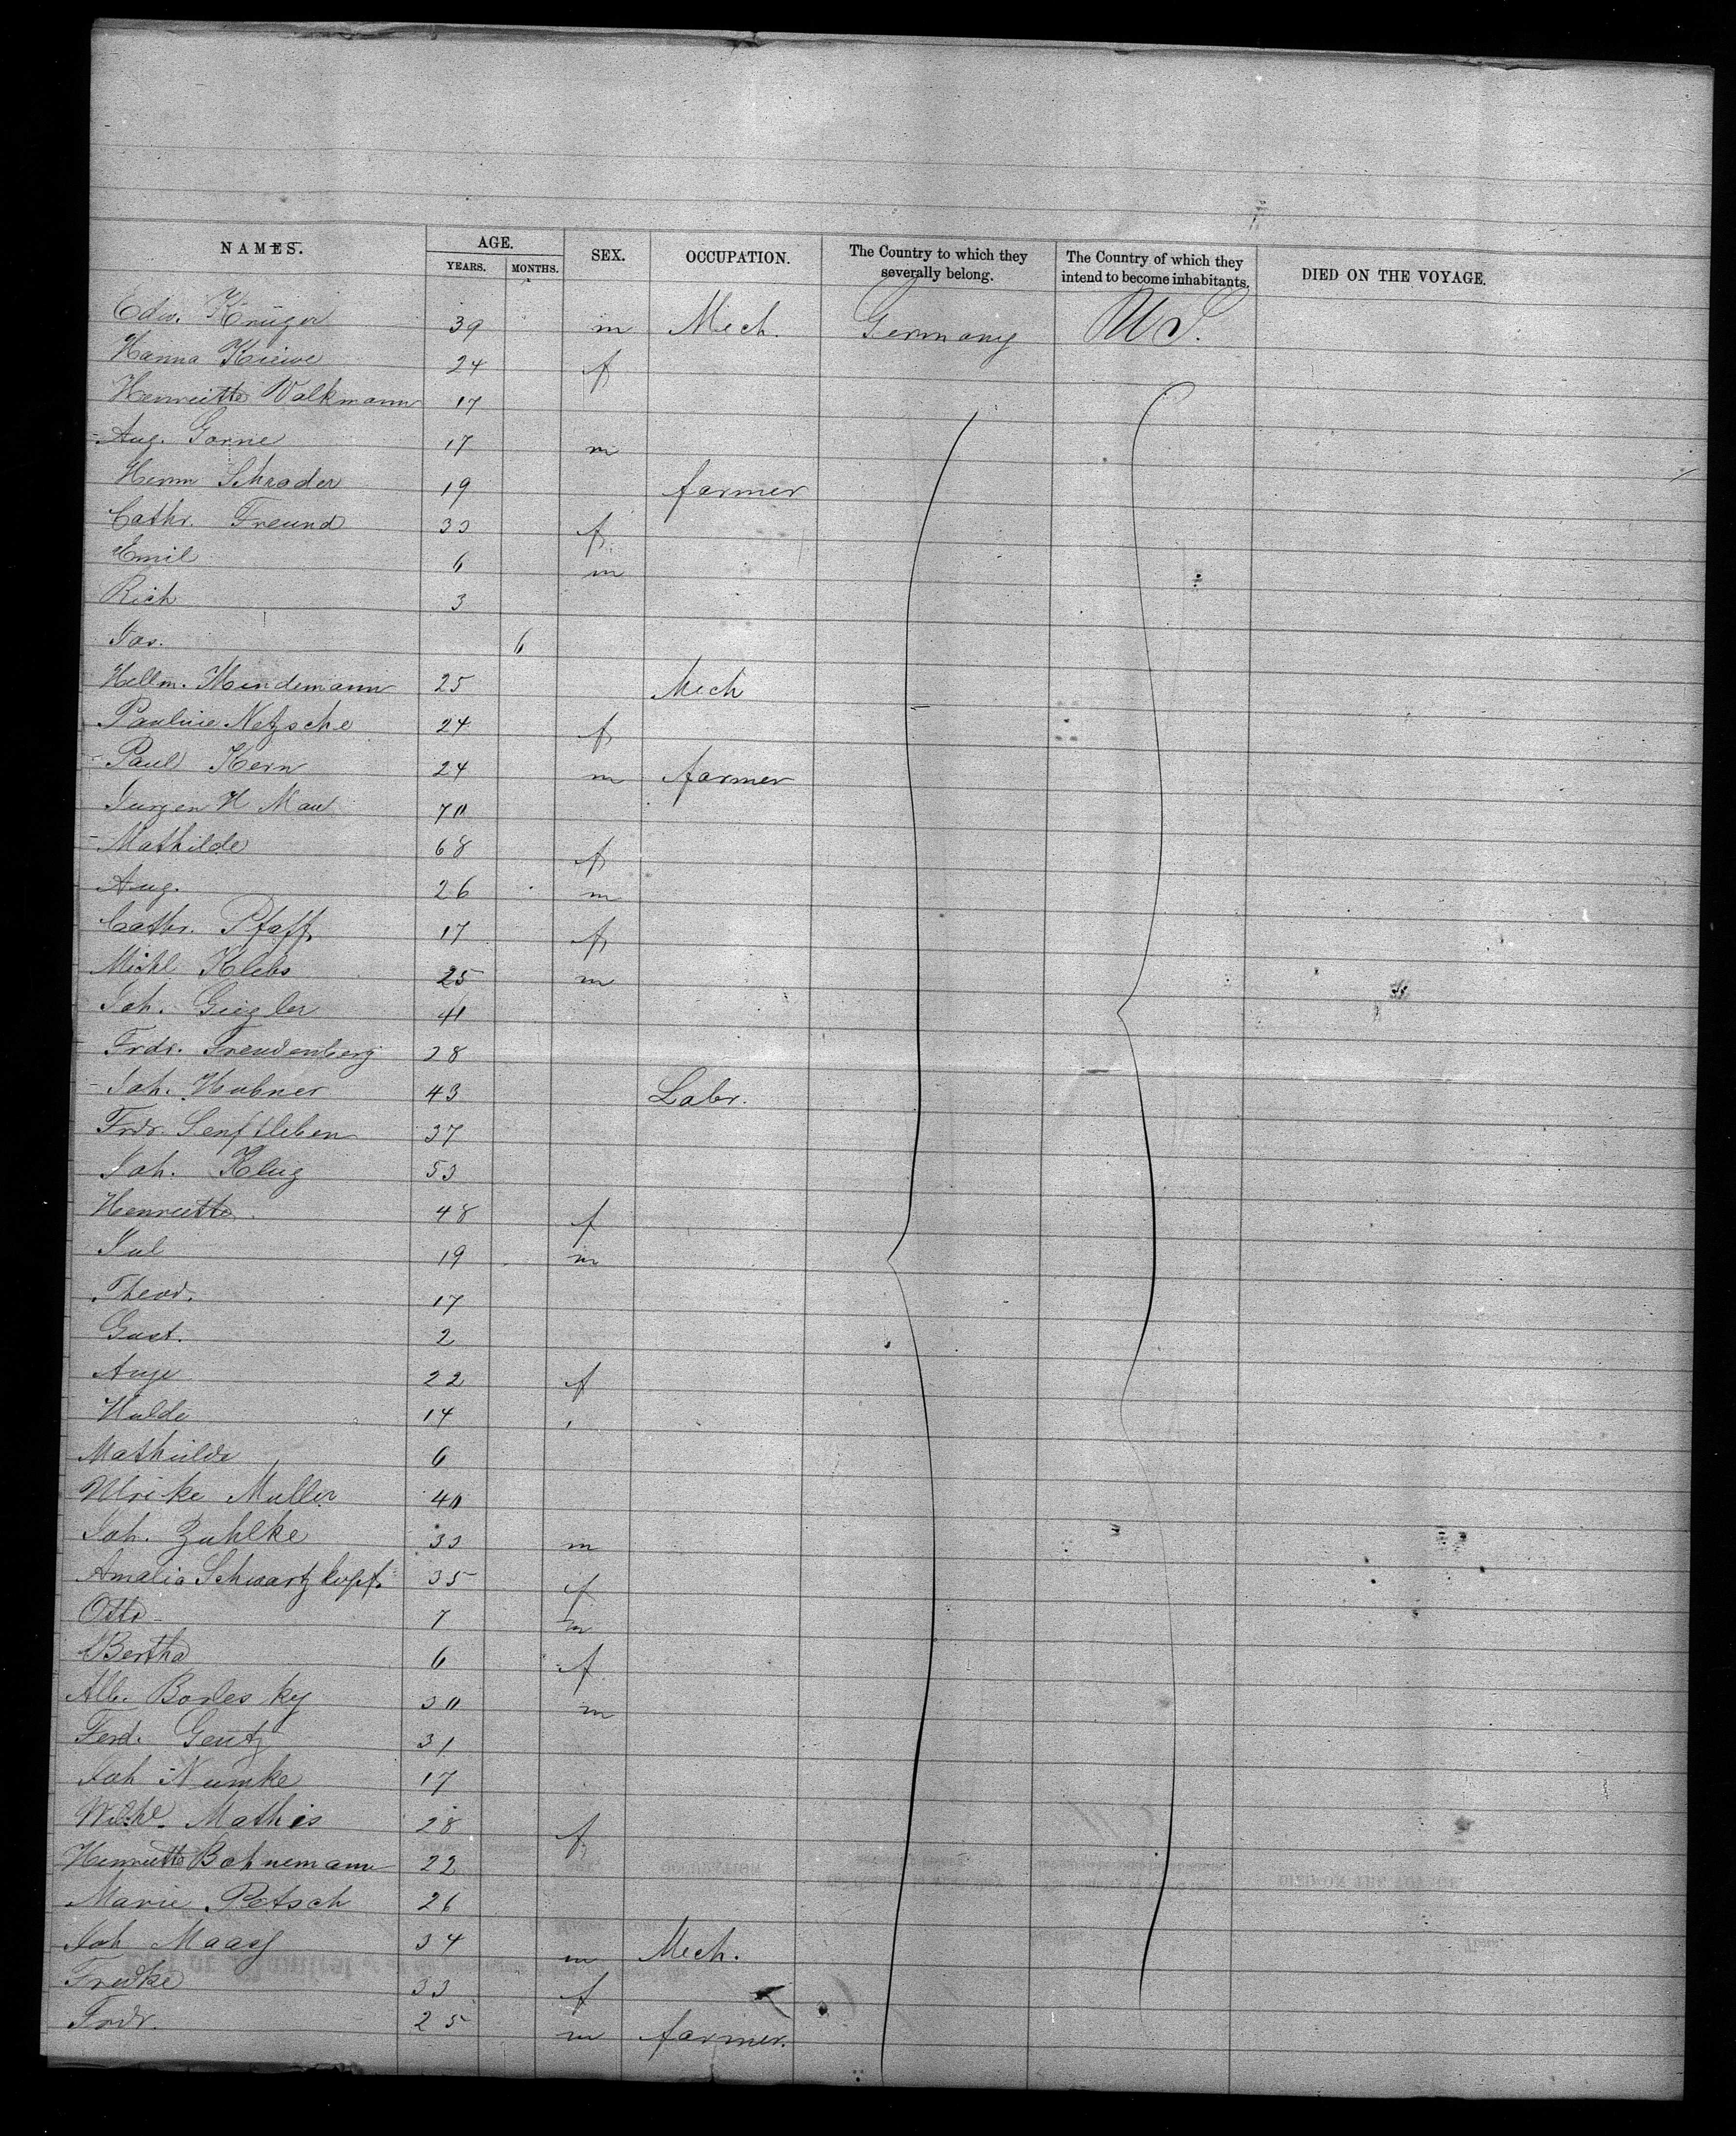 NAMES. AGE. SEX. OCCUPATION. The Country to which they severally belong. The Country of which they intend to become inhabitants. DIED ON THE VOYAGE.
YEARS. MONTHS.
Edw. Krüger 39 m Mech. Germany US.
Hanna Kiewe 24 f
Henriette Volkmann 17
Aug. Gorne 17 m
Herm Schrader 19 farmer
Cathr. Freund 33 f
Emil 6 m
Rich 3
Jas. 6
Hellm. Mindemann 25 Mech
Pauline Netzsche 24 f
Paul Kern 24 m farmer
Jurgen H Mau 70
Mathilde 68 f
Aug. 26 m
Cathr. Pfaff 17 f
Michl Klebs 25 m
Joh. Giegler 41
Frdr. Freudenberg 28
Joh. Hubner 43 Labr.
Frdr. Senftleben 37
Joh. Klug 53
Henriette 48 f
Jul 19 m
Theod. 17
Gust. 2
Auge 22 f
Hulda 14
Mathilde 6
Ulrike Muller 40
Joh. Zuhlke 33 m
Amalia Schwartzkopf 35 f
Otto 7 m
Bertha 6 f
Alb. Borlesky 30 m
Ferd. Gentz 31
Joh Numke 17
Wilhe. Mathis 28 f
Henriette Bohnemann 22
Marie Petsch 26
Joh Maass 34 m Mech.
Fredke 33 f
Frdr. 25 m farmer.